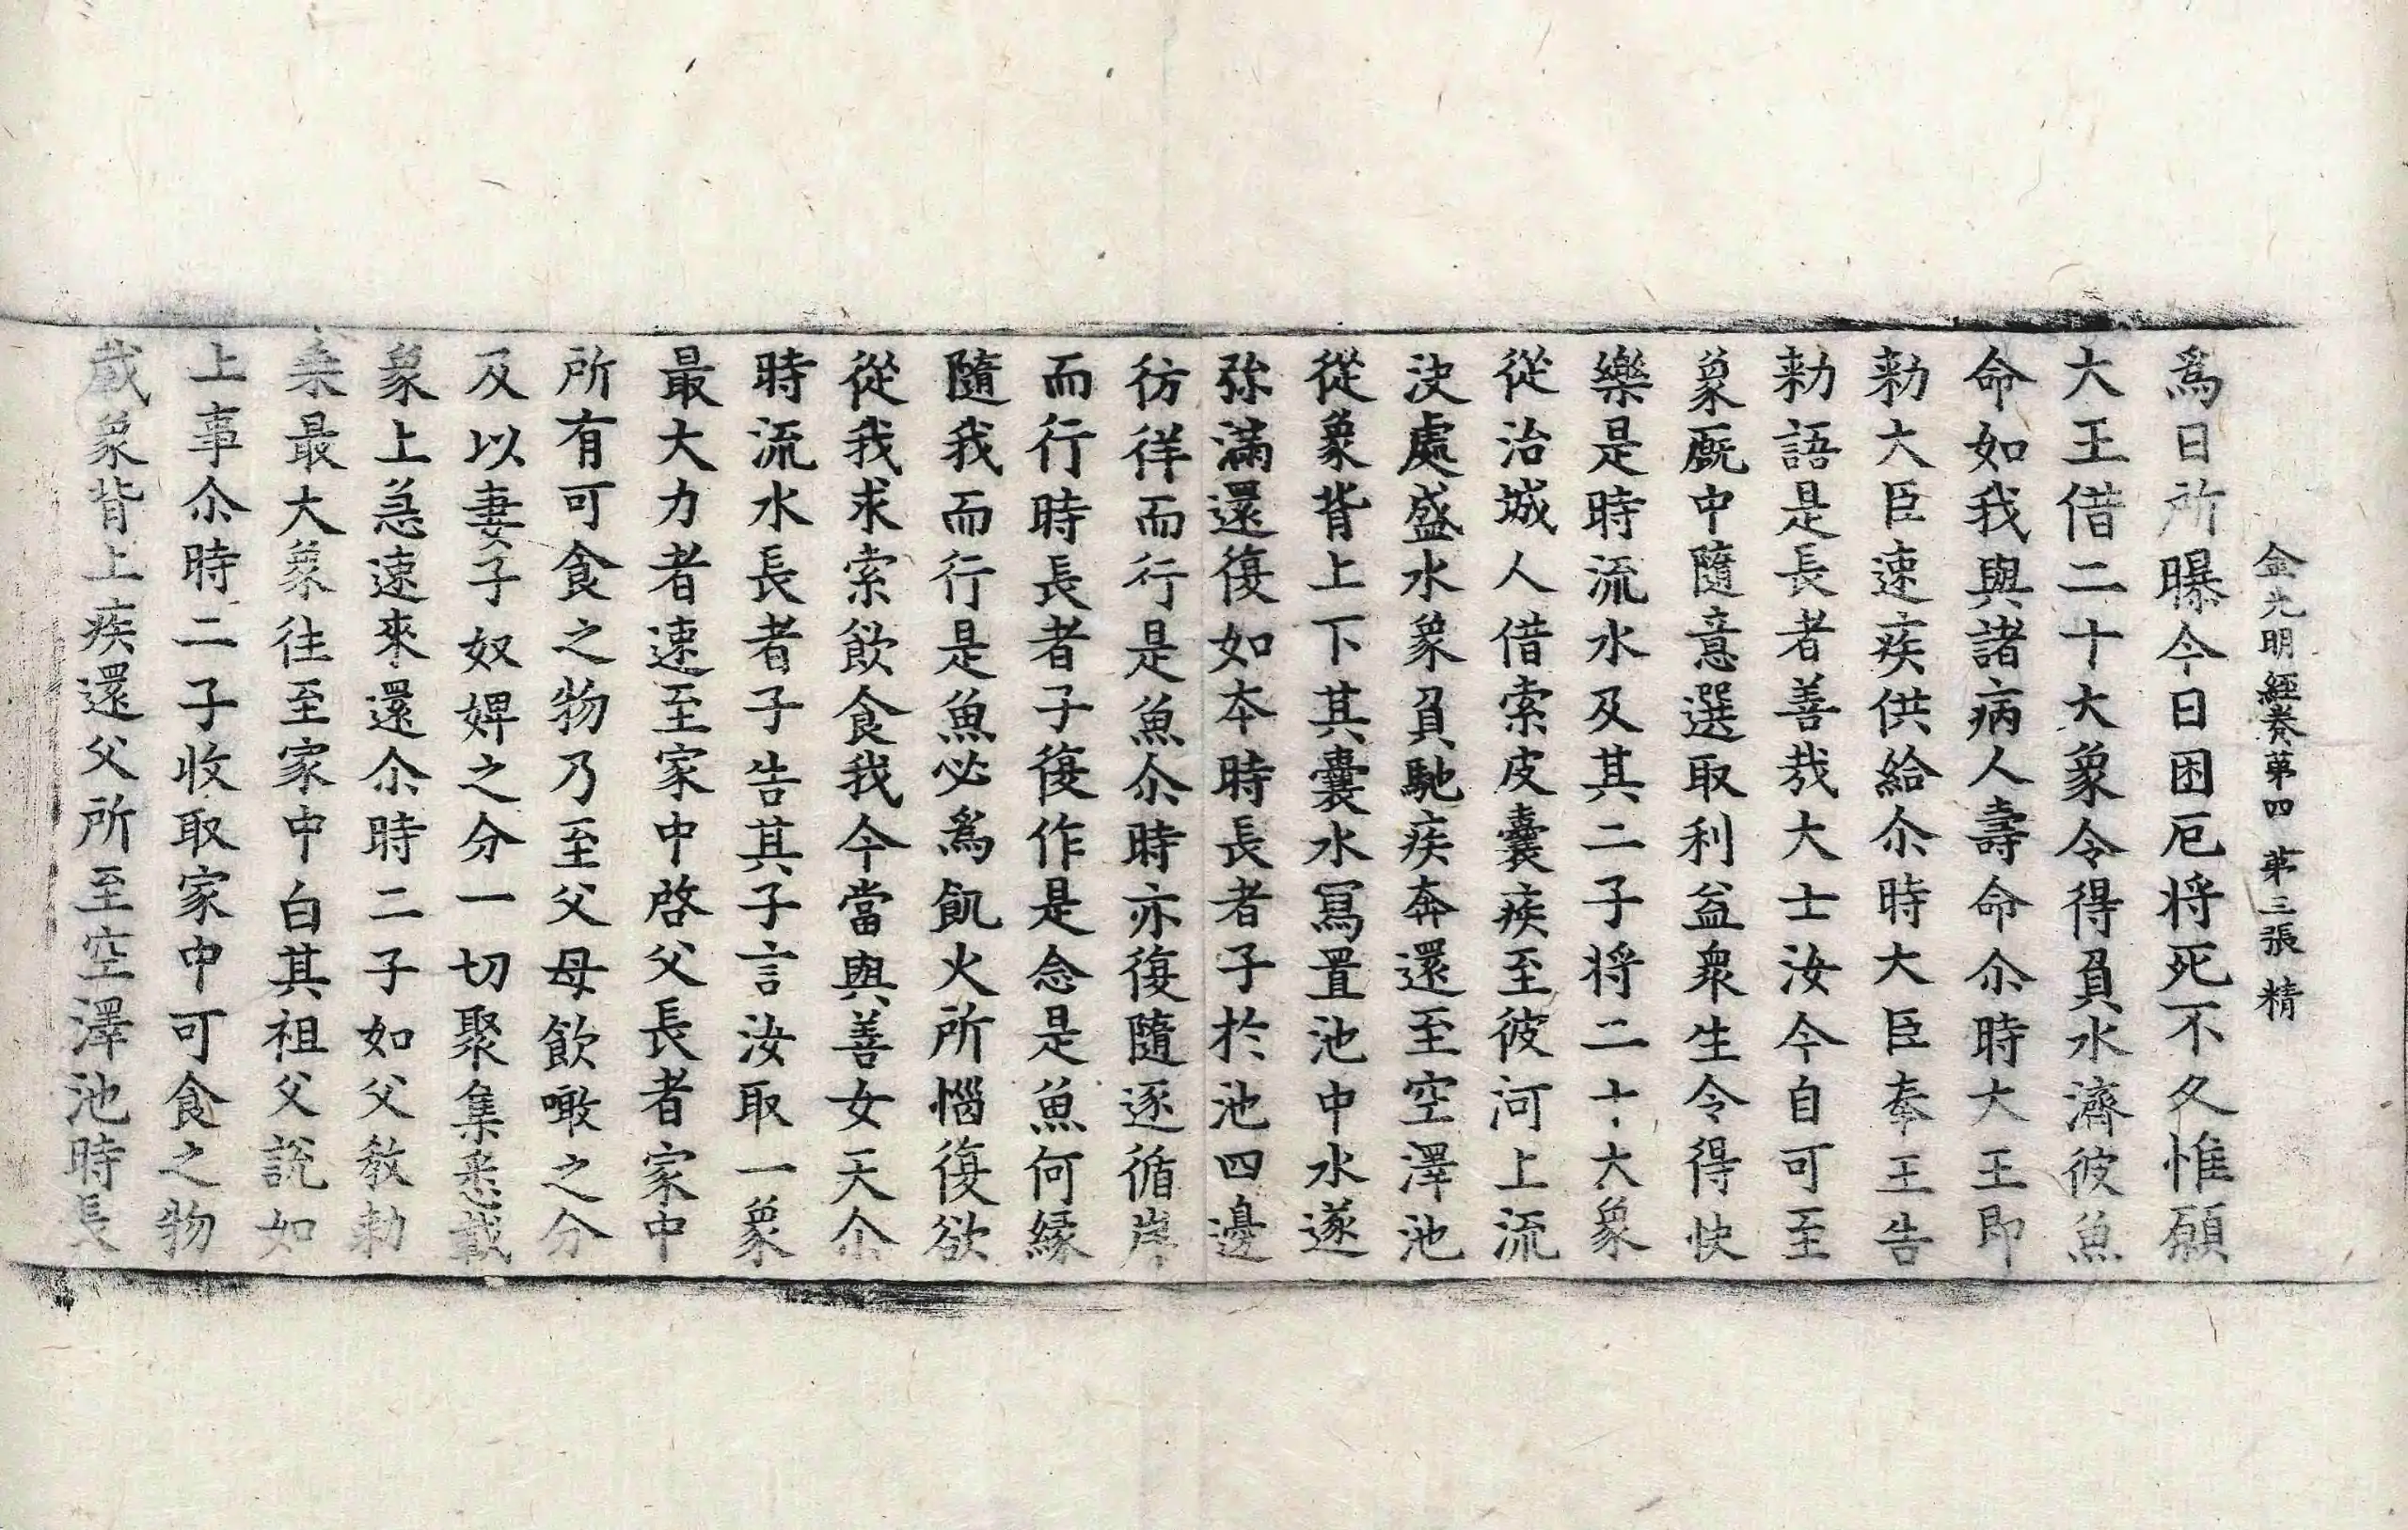 金光明經卷第四 第三張 精
爲日所曝今日困厄将死不久惟願
大王借二十大象令得負水濟彼魚
命如我與諸病人壽命尒時大王即
勑大臣速疾供給尒時大臣奉王告
勑語是長者善哉大士汝今自可至
象厩中隨意選取利益衆生令得快
樂是時流水及其二子将二十大象
從治城人借索皮囊疾至彼河上流
决處盛水象負馳疾奔還至空澤池
從象背上下其囊水寫置池中水遂
弥滿還復如本時長者子於池四邊
彷徉而行是魚尒時亦復隨逐循岸
而行時長者子復作是念是魚何緣
隨我而行是魚必爲飢火所惱復欲
從我求索飲食我今當與善女天尒
時流水長者子告其子言汝取一象
最大力者速至家中啓父長者家中
所有可食之物乃至父母飲噉之分
及以妻子奴婢之分一切聚集悉載
象上急速來還尒時二子如父教勑
乘最大象往至家中白其祖父說如
上事尒時二子收取家中可食之物
載象背上疾還父所至空澤池時長